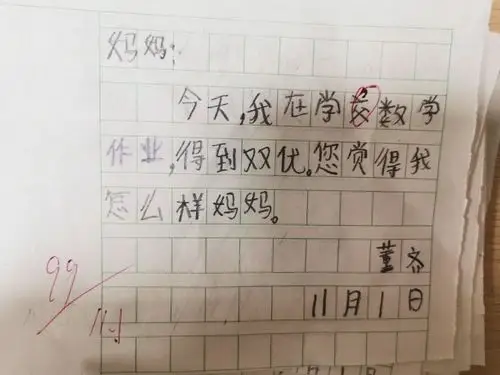 妈妈:
今天,我在学校数学
作业,得到双优。您觉得我
怎么样妈妈。
董齐
11月1日
99
11.1